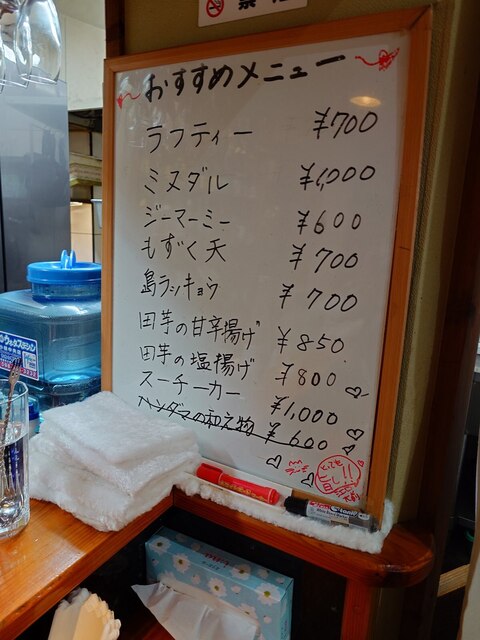 おすすめメニュー
ラフティー ¥700
ミヌダル ¥1,000
ジーマーミー ¥600
もずく天 ¥700
島ラッキョウ ¥700
田芋の甘辛揚げ ¥850
田芋の塩揚げ ¥800
スーチーカー ¥1,000
ハンダマの和え物 ¥600